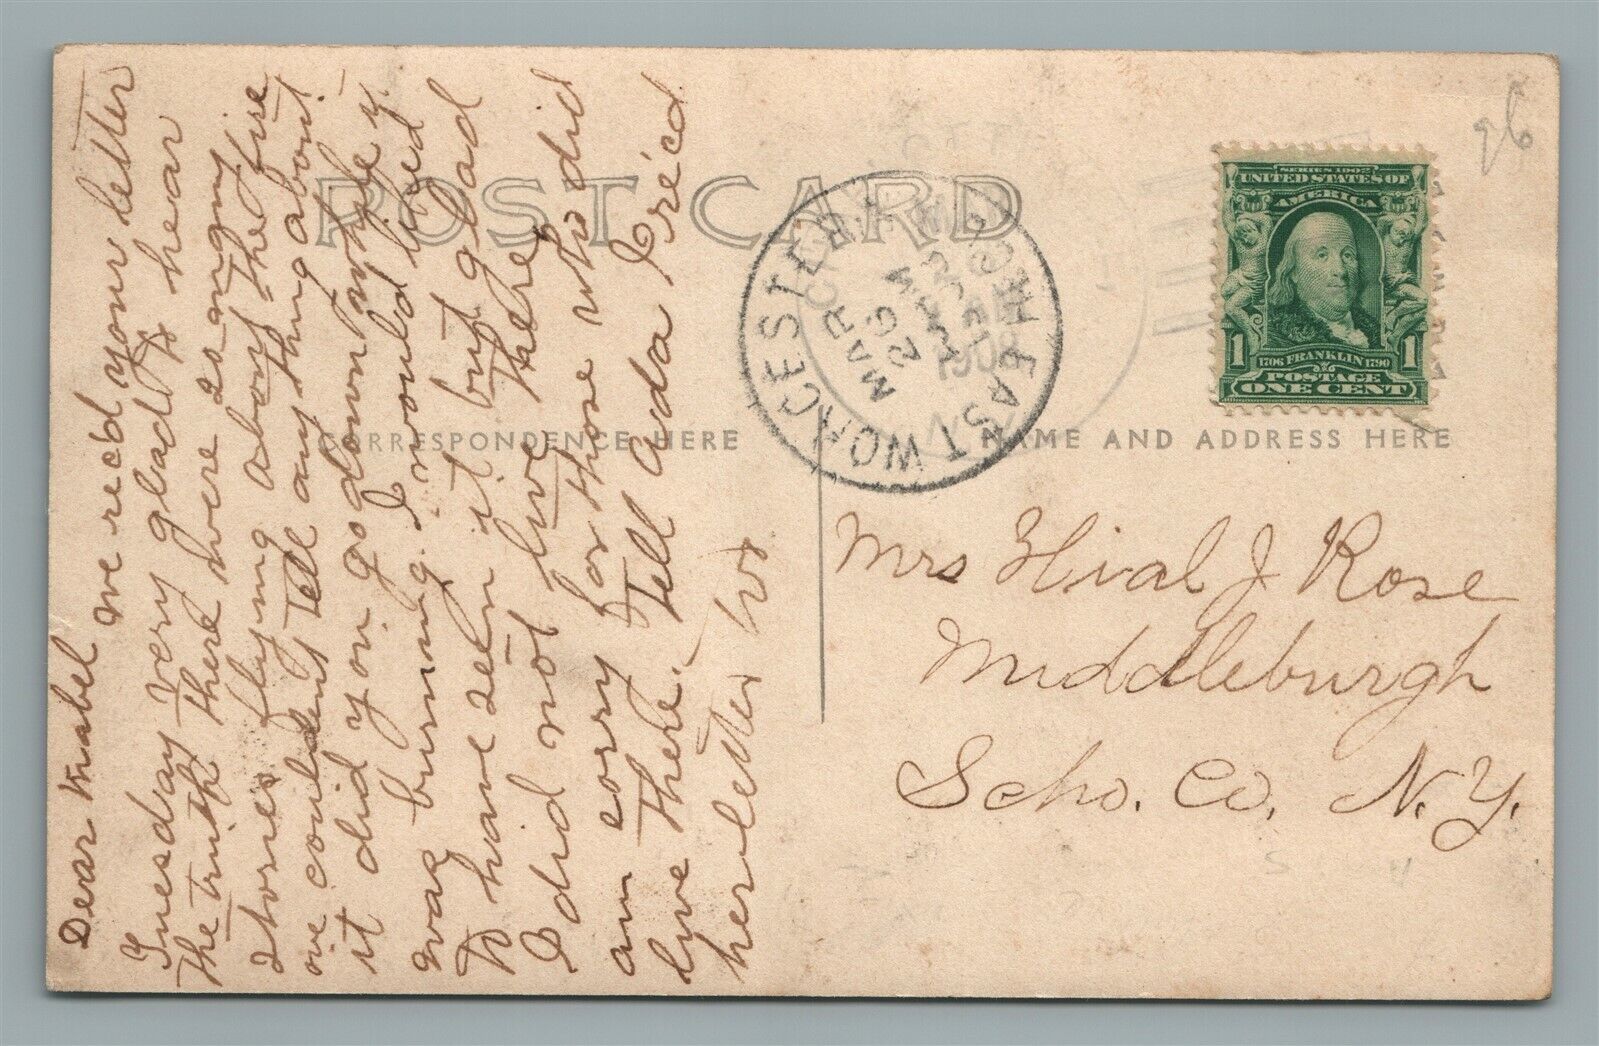 POST CARD
CORRESPONDENCE HERE
NAME AND ADDRESS HERE
EAST WORCESTER
MAR
26
1908
SERIES 1902
UNITED STATES OF
AMERICA
1 1706 FRANKLIN 1790 1
POSTAGE
ONE CENT
96
Dear Mabel
we recd your letter
Tuesday very glad to hear
the truth there were so many
stories flying about the fire
we couldent tell any thing about
it did you go down while it
was burning. I would liked
to have seen it but glad
I did not live there
am sorry for those who did
live there. Tell Ada I rec'd
her letter
Mrs Hial J Rose
Middleburgh
Scho. Co. N.Y.